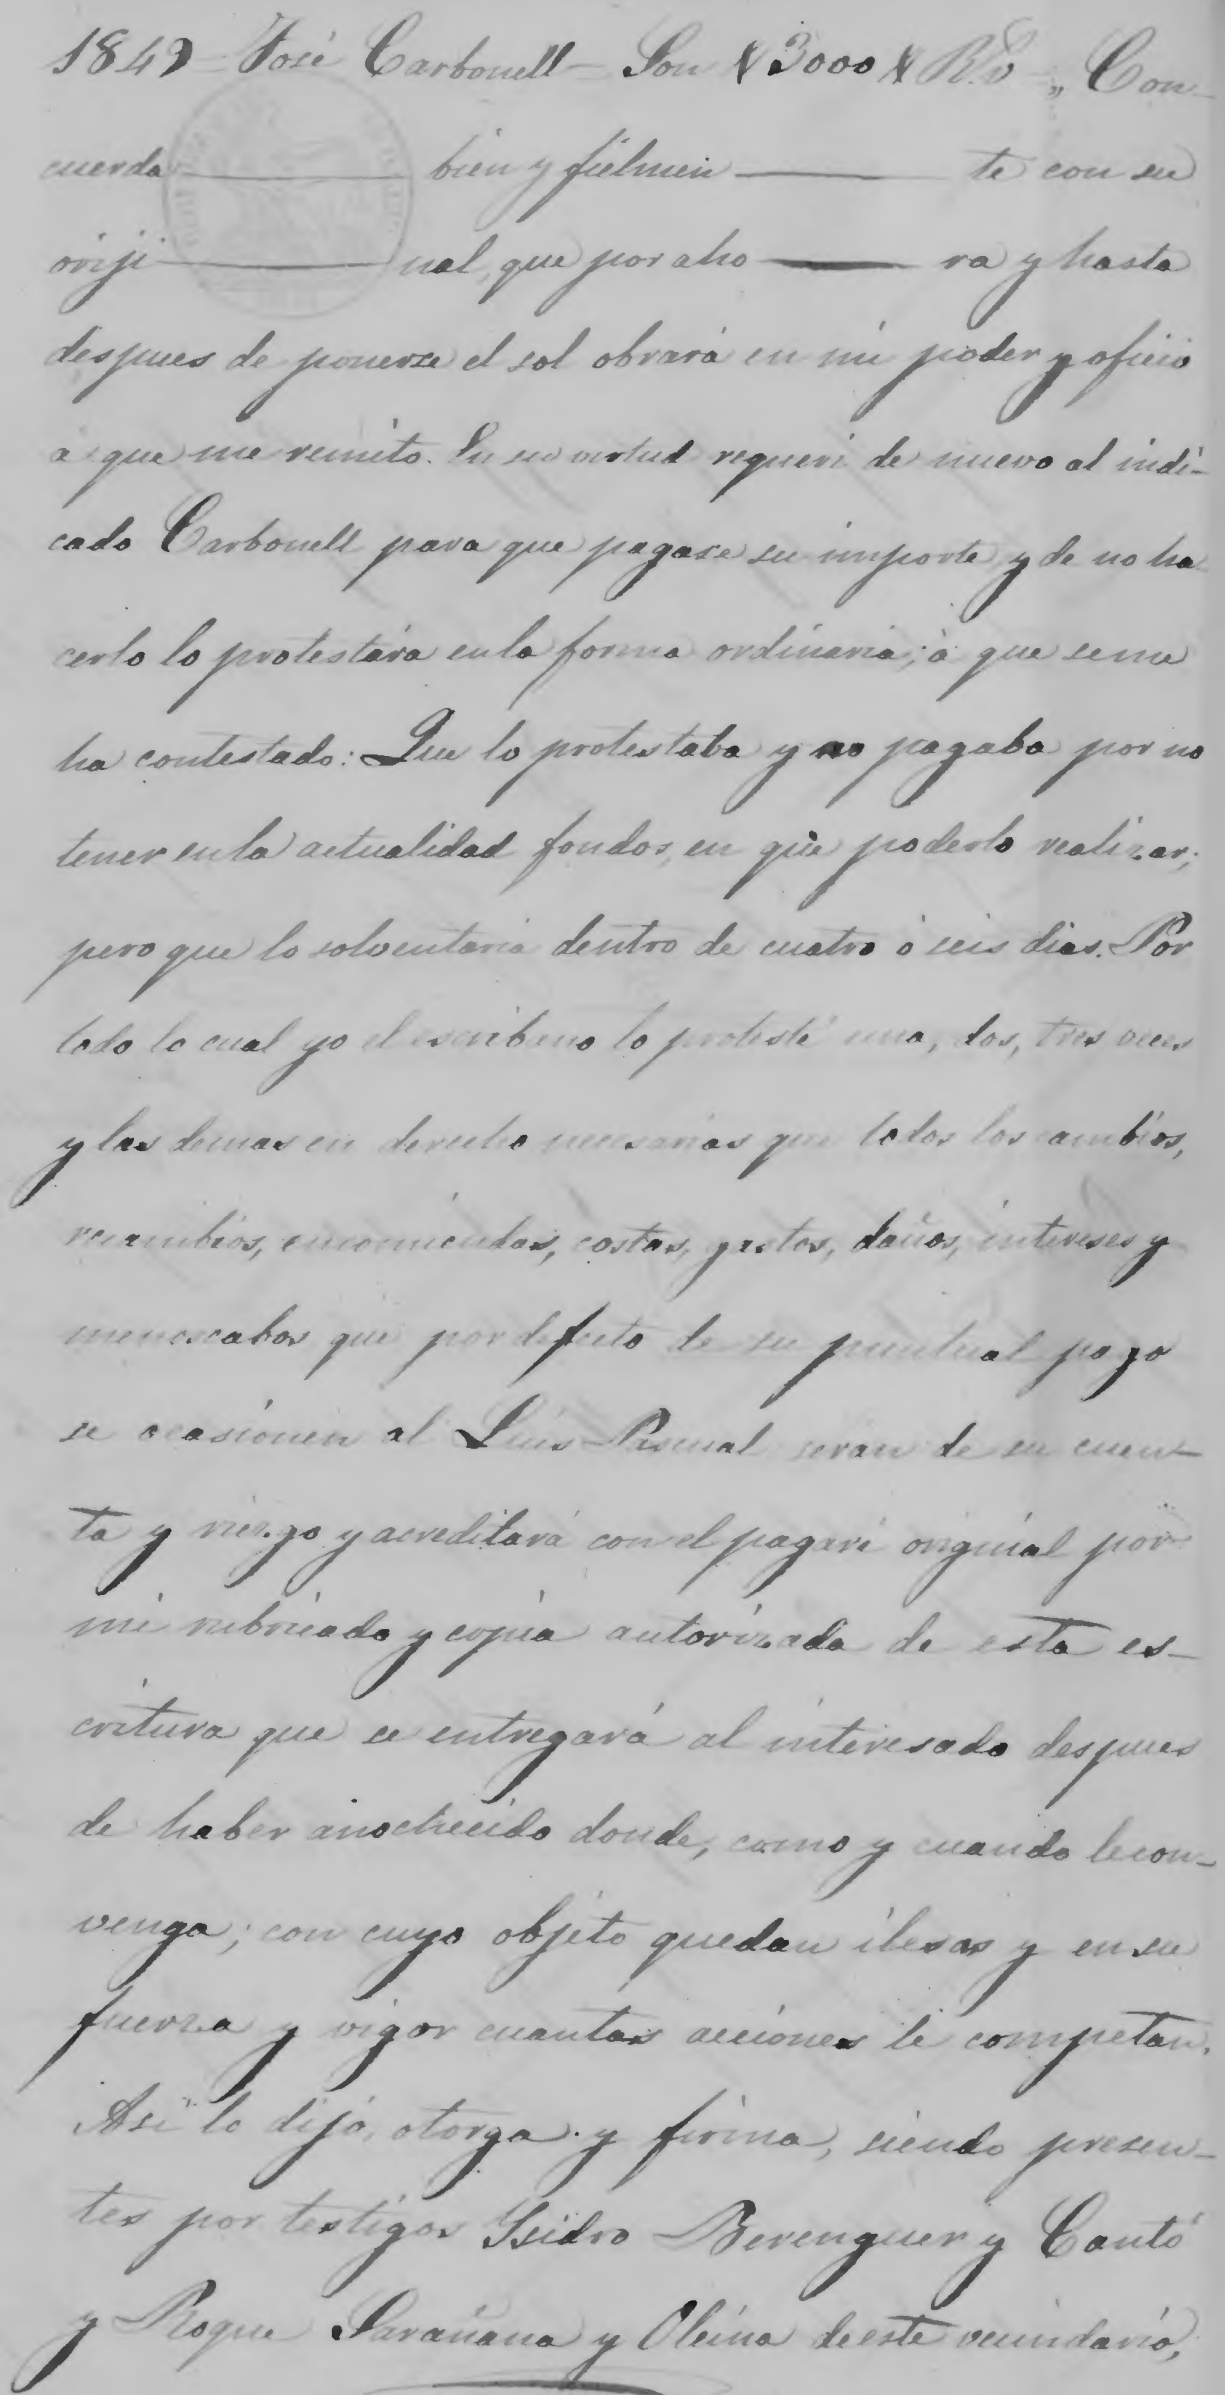 1849 - José Carbonell - Son # 3000 # R.V - „ Con-
cuerda bien y fielmen te con su
oriji nal, que por aho ra y hasta
despues de ponerse el sol obrará en mi poder y oficio
á que me remito. En su virtud requerí de nuevo al indi-
cado Carbonell para que pagase su importe y de no ha
cerlo lo protestára en la forma ordinaria; á que se me
ha contestado: Que lo protestaba y no pagaba por no
tener en la actualidad fondos, en que poderlo realizar;
pero que lo solventaria dentro de cuatro ó seis dias. Por
todo lo cual yo el escribano lo protesté una, dos, tres veces
y las demas en derecho necesarias que todos los cambios,
recambios, encomiendas, costas, gastos, daños, intereses y
menoscabos que por defecto de su puntual pago
se ocasionen al Luis Pascual seran de su cuen-
ta y riezgo y acreditará con el pagaré original por
mi rubricado y copia autorizada de esta es-
critura que se entregará al interesado despues
de haber anochecido donde, como y cuando le con-
venga; con cuyo objeto quedan ilesas y en su
fuerza y vigor cuantas acciones le competan.
Asi lo dijo, otorga y firma, siendo presen-
tes por testigos Ysidro Berenguer y Cantó
y Roque Sarañana y Olcina de este vecindario,